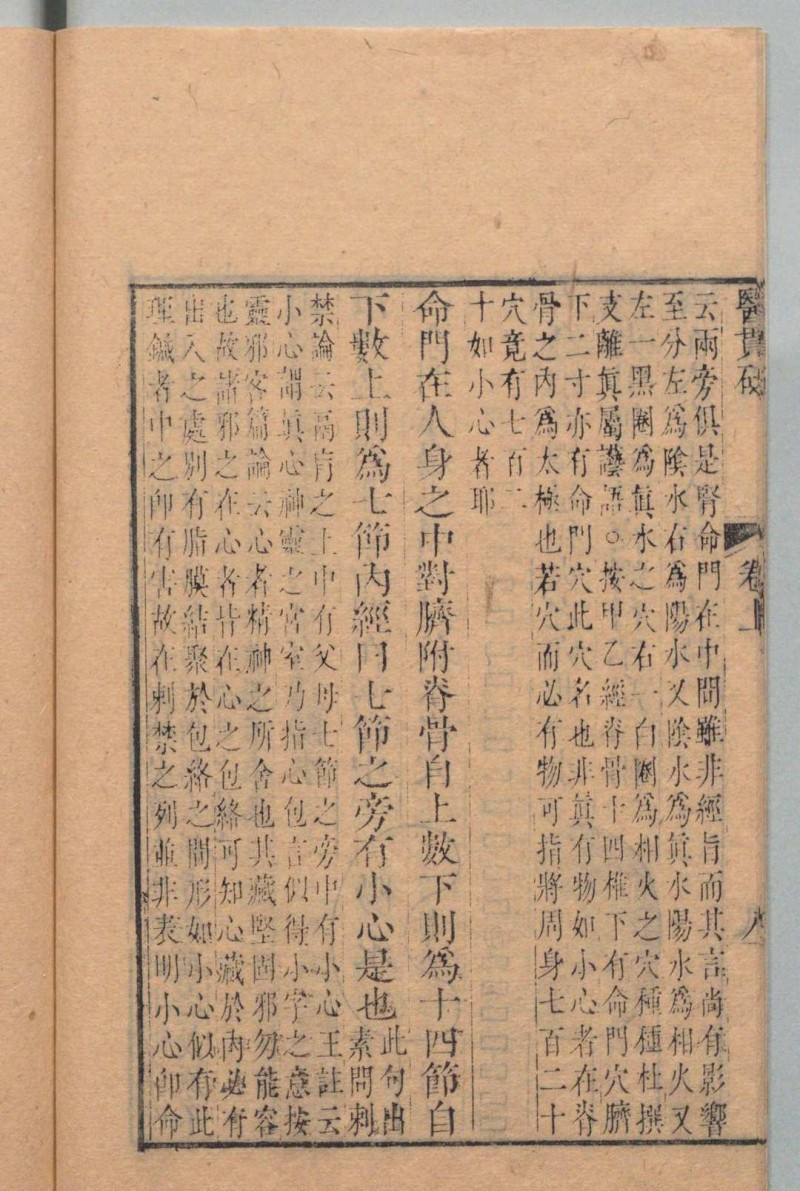 醫貫砭 卷上 八
云兩旁俱是腎命門在中間雖非經旨而其言尚有影響
至分左爲陰水右爲陽水又陰水爲眞水陽水爲相火又
左一黑圈爲眞水之穴右一白圈爲相火之穴種種杜撰
支離眞屬讝語○按甲乙經脊骨十四椎下有命門穴臍
下二寸亦有命門穴此穴名也非眞有物如小心者在脊
骨之內爲太極也若穴而必有物可指將周身七百二十
穴竟有七百二
十如小心者耶
命門在人身之中對臍附脊骨自上數下則爲十四節自
下數上則爲七節內經曰七節之旁有小心是也此句出
素問刺
禁論云鬲肓之上中有父母七節之旁中有小心王註云
小心謂眞心神靈之宮室乃指心包言似得小字之意按
靈邪客篇論云心者精神之所舍也其藏堅固邪勿能容
也故諸邪之在心者皆在心之包絡可知心藏於內必有
出入之處別有脂膜結聚於包絡之間形如小心似有此
理鍼者中之卽有害故在刺禁之列並非表明小心卽命